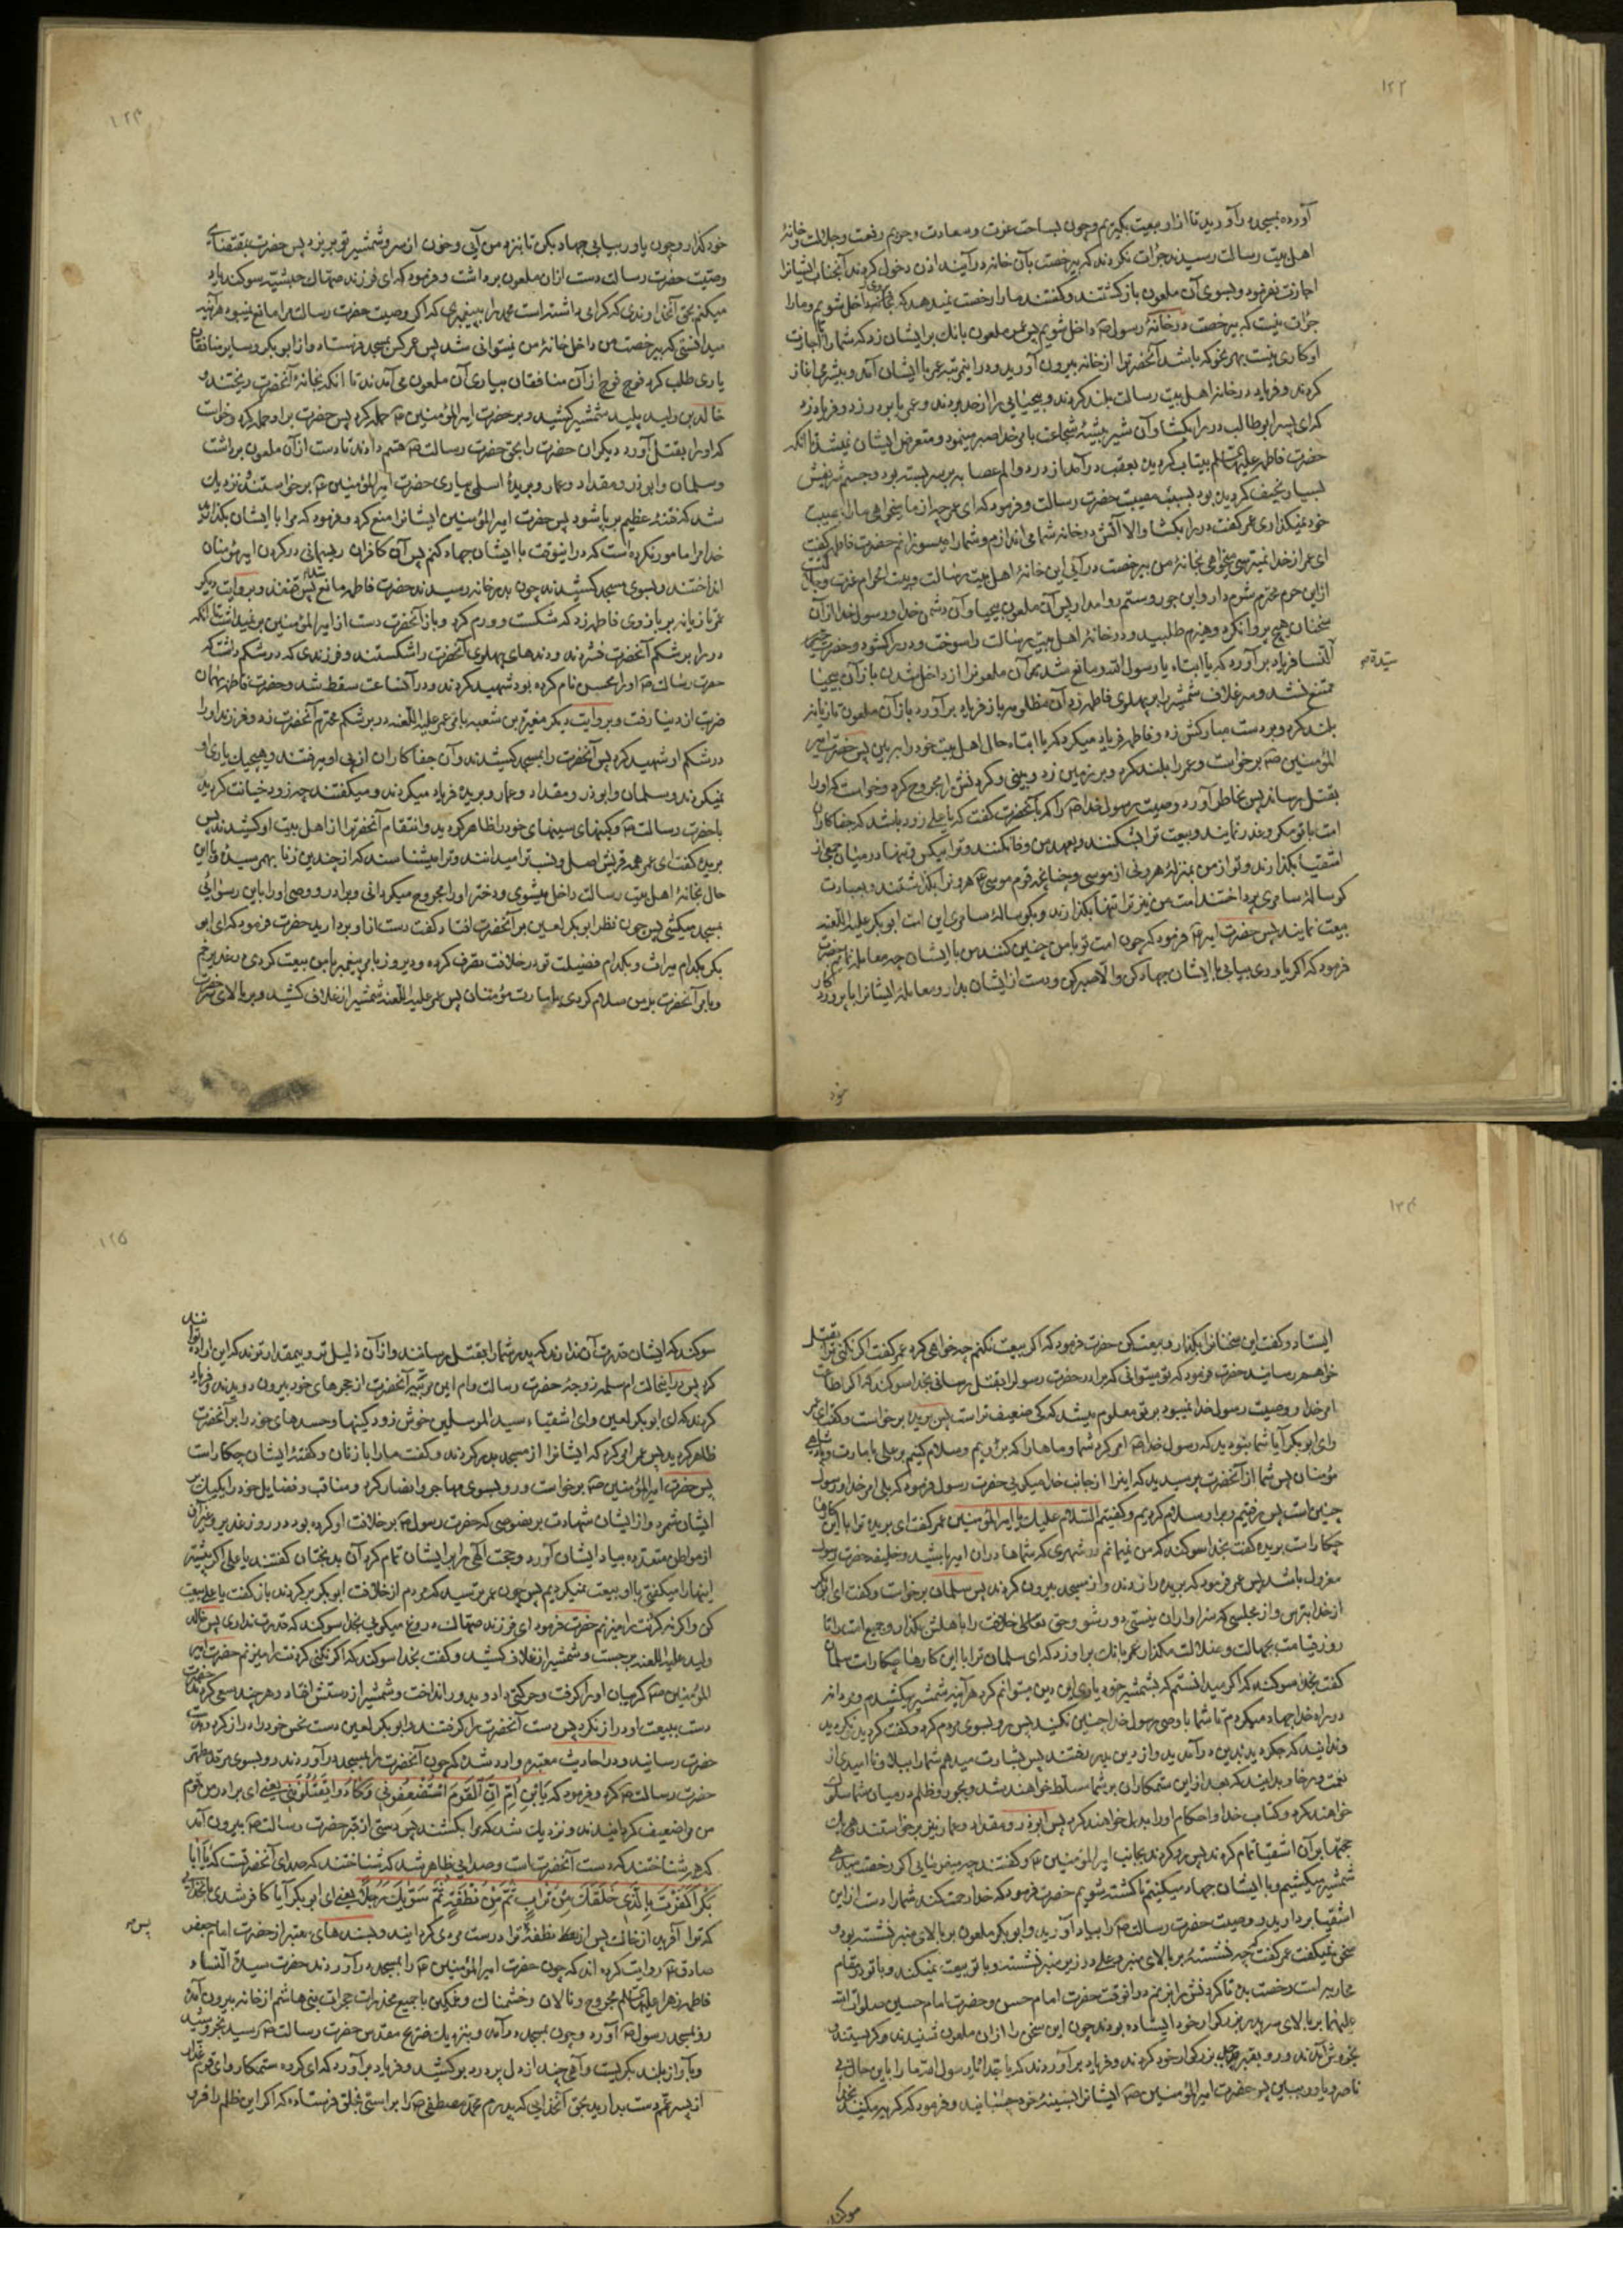 ۱۲۲
آورده بمسجد درآورید تا از او بیعت بگیریم و چون بساحت عزت و سعادت و حریم رفعت و جلالت و خانهٔ
اهل بیت رسالت رسیدند جرات نکردند که بیرخصت بآن خانه درآیند اذن دخول کردند آنجناب ایشانرا
اجازت نفرمود و بسوی آن ملعون بازکشتند و کفتند ما را رخست نمیدهد که داخل شویم و ما را
جرات نیست که بیرخصت درخانهٔ رسول ص داخل شویم پس عمر ملعون بانك بر ایشان زد که شما را با اجازت
او کاری نیست بهر نحو که باشد آنحضرترا از خانه بیرون آورید و در اینمرتبه عمر با ایشان آمد و بیشرمی اغاز
کردند و فریاد در خانه اهل بیت رسالت بلند کردند و بیحیایی را از حد بردند و عمر پا بر در زد و فریاد زد
که ای پسر ابوطالب در را بکشا و آن شیر بیشهٔ شجاعت بامر خدا صبر مینمود و متعرض ایشان نمیشد تا آنکه
حضرت فاطمه علیها السلم بیتاب کردیده بعقب در آمد از درد و الم عصابه بر سر بسته بود و جسم شریفش
بسیار نحیف کردیده بود بسبب مصیبت حضرت رسالت و فرمود که ای عمر چه از ما میخواهی ما را بمصیبت
خود نمیکذاری عمر کفت در را بکشا والا آتش در خانه شما می اندازم و شما را میسوزانم حضرت فاطمه کفت
ای عمر از خدا نمیترسی میخواهی بخانهٔ من بیرخصت درآئی این خانهٔ اهل بیت رسالت و بیت الحرام عزت و جلالت
ازین حرم محترم شرم دار و این جور و ستم روا مدار پس آن ملعون بیحیا و آن دشمن خدا و رسول خدا از آن
سخنان هیچ پروا نکرد و هیزم طلبید و در خانهٔ اهل بیت رسالت را سوخت و در را کشود و حضرت
سیدة صح
النسا فریاد برآورد که یا ابتاه یا رسول الله و مانع شد آن ملعونرا از داخل شدن باز آن بیحیا
ممتنع نشد و سر غلاف شمشیر را بر پهلوی فاطمه زد آن مظلومه باز فریاد برآورد باز آن ملعون تازیانه
بلند کرد و بر دست مبارکش زد و فاطمه فریاد میکرد که یا ابتاه حال اهل بیت خود را ببین پس حضرت امیر
المؤمنین ص برخواست و عمر را بلند کرد و بر زمین زد و بینی و کردنش را مجروح کرد و خواست که او را
بقتل رساند پس بخاطر آورد وصیت رسول خدا ص را که بآنحضرت کفت که یا علی زود باشد که جفاکاران
امت با تو مکر و غدر نمایند و بیعت ترا بشکنند و بعهد من وفا نکنند و ترا بیکس و تنها در میان جمعی از
اشقیا بکذارند و تو از من بمنزلهٔ هرونی از موسی و چنانچه قوم موسی هرونرا بکذاشتند و بعبادت
کوسالهٔ سامری پرداختند امت من نیز ترا تنها بکذارند و بکوسالهٔ سامری این امت ابوبکر علیه اللعنه
بیعت نمایند پس حضرت امیر فرمود که چون امت تو با من چنین کنند من با ایشان چه معامله نمایم حضرت
فرمود که اکر یاوری بیابی با ایشان جهاد کن والا صبر کن و دست از ایشان بدار و معامله ایشانرا با پروردکار
خود
۱۲۳
خود کذار و چون یاور بیابی جهاد بکن تا بنزد من آیی و خون از سر و شمشیر تو بریزد پس حضرت بمقتضای
وصیت حضرت رسالت دست از ان ملعون برداشت و فرمود که ای فرزند صهاك حبشیه سوکند یاد
میکنم بحق آنخداوندی که کرامی داشته است محمد را به پیغمبری که اکر وصیت حضرت رسالت مرا مانع نمیبود هرآینه
میدانستی که بیرخصت من داخل خانهٔ من نمیتوانی شد پس عمر کس بمسجد فرستاد و از ابوبکر و سایر منافقان
یاری طلب کرد فوج فوج از آن منافقان بیاری آن ملعون می آمدند تا انکه بخانهٔ آنحضرت ریختند و
خالد بن ولید پلید شمشیر کشید و بر حضرت امیر المؤمنین ص حمله کرد پس حضرت بر او حمله کرد و خواست
که او را بقتل آورد دیکران حضرت را بحق حضرت رسالت ص قسم دادند تا دست از آن ملعون برداشت
و سلمان و ابوذر و مقداد و عمار و بریدهٔ اسلمی بیاری حضرت امیر المؤمنین ع برخواستند و نزدیك
شد که فتنهٔ عظیم برپا شود پس حضرت امیر المؤمنین ایشانرا منع کرد و فرمود که مرا با ایشان بکذارید
خدا مرا مامور نکرده است که در اینوقت با ایشان جهاد کنم پس آن کافران ریسمانی در کردن امیر مؤمنان
انداختند و بسوی مسجد کشیدند چون بدر خانه رسیدند حضرت فاطمه مانع شد پس قنفذ و بروایت دیکر
عمر تازیانه بر بازوی فاطمه زد که شکست و ورم کرد و باز آنحضرت دست از امیر المؤمنین برنمیداشت تا آنکه
در را بر شکم آنحضرت فشردند و دندهای پهلوی آنحضرت را شکستند و فرزندی که در شکم داشت که
حضرت رسالت ص او را محسن نام کرده بود شهید کردند و در آنساعت سقط شد و حضرت فاطمه بهمان
ضربت از دنیا رفت و بروایت دیکر مغیرة بن شعبه بامر عمر علیه اللعنه در بر شکم محترم آنحضرت زد و فرزند او را
در شکم او شهید کرد پس آنحضرت را بمسجد کشیدند و آن جفاکاران از پی او میرفتند و هیچیك یاری او
نمیکردند و سلمان و ابوذر و مقداد و عمار و بریده فریاد میکردند و میکفتند چه زود خیانت کردید
با حضرت رسالت و کینهای سینهای خود را ظاهر کردید و انتقام آنحضرترا از اهل بیت او کشیدند پس
بریده کفت ای عمر همه قریش اصل و نسب ترا میدانند و ترا میشناسند که از چندین زنا بهم رسیدهٔ و با این
حال بخانهٔ اهل بیت رسالت داخل میشوی و دختر او را مجروح میکردانی و برادر و وصی او را باین رسوائی
بمسجد میکشی پس چون نظر ابوبکر لعین بر آنحضرت افتاد کفت دست از او بردارید حضرت فرمود که ای ابو
بکر بکدام میراث و بکدام فضیلت تو در خلافت تصرف کرده و دیروز بامر پیغمبر با من بیعت کردی در غدیر خم
و بامر آنحضرت بر من سلام کردی بامارت مؤمنان پس عمر علیه اللعنه شمشیر از غلاف کشید و بر بالای سر حضرت
۱۲۴
ایستاد و کفت این سخنانرا بکذار و بیعت کن حضرت فرمود که اکر بیعت نکنم چه خواهی کرد عمر کفت اکر نکنی ترا بقتل
خواهم رسانید حضرت فرمود که تو میتوانی که برادر حضرت رسول را بقتل رسانی بخدا سوکند که اکر اطاعت
امر خدا و وصیت رسول خدا نمیبود بر تو معلوم میشد که کی ضعیف تر است پس بریده برخواست و کفت ای عمر
و ای ابوبکر آیا شما نبودید که رسول خدا ص امر کرد شما و ماها را که برویم و سلام کنیم بر علی بامارت و پادشاهی
مؤمنان پس شما از آنحضرت پرسیدید که اینرا از جانب خدا میکویی حضرت رسول فرمود که بلی امر خدا و رسول
چنین است پس رفتیم و بر او سلام کردیم و کفتیم السلام علیك یا امیر المؤمنین عمر کفت ای بریده ترا با این کارها
چکار است بریده کفت بخدا سوکند که من نمیمانم در شهری که شماها در ان امیر باشید و خلیفه حضرت رسول
معزول باشد پس عمر فرمود که بریده را زدند و از مسجد بیرون کردند پس سلمان برخواست و کفت ای ابوبکر
از خدا بترس و از مجلسی که سزاوار ان نیستی دور شو و حق تعالی خلافت را باهلش بکذار و جمیع امت را تا
روز قیامت بجهالت و ضلالت مکذار عمر بانك بر او زد که ای سلمان ترا با این کارها چکار است سلمان
کفت بخدا سوکند که اکر میدانستم که بشمشیر خود یاری این دین میتوانم کرد هرآینه شمشیر میکشیدم و مردانه
در راه خدا جهاد میکردم تا شما با وصی رسول خدا چنین نکنید پس رو بسوی مردم کرد و کفت کردید نکردید
و ندانید که چکردید بدین درآمدید و از دین بدر رفتید پس بشارت میدهم شما را ببلا و نا امیدی از
نعمت و رخا و بدانید که بعد از این ستمکاران بر شما مسلط خواهند شد و بجور و ظلم در میان شما سلوك
خواهند کرد و کتاب خدا و احکام او را بدل خواهند کرد پس ابوذر و مقداد و عمار نیز برخواستند و هر یك
حجتها بر آن اشقیا تمام کردند پس رو کردند بجانب امیر المؤمنین ع و کفتند چه میفرمایی اکر رخصت میدهی
شمشیر میکشیم و با ایشان جهاد میکنیم تا کشته شویم حضرت فرمود که خدا رحمت کند شما را دست از این
اشقیا بردارید و وصیت حضرت رسالت ص را بیاد آورید و ابوبکر ملعون بر بالای منبر نشسته بود و
سخن نمیکفت عمر کفت چه نشستهٔ بر بالای منبر و علی در زیر منبر نشسته و با تو بیعت نمیکند و با تو در مقام
محاربه است رخصت بده تا کردنش را بزنم و در انوقت حضرت امام حسن و حضرت امام حسین صلوات الله
علیهما بر بالای سر پدر بزرکوار خود ایستاده بودند چون این سخن را از ان ملعون شنیدند و کریستند و
بخروش آمدند و رو بقبر جد بزرکوار خود کردند و فریاد برآوردند که یا جداه یا رسول الله ما را باین حال بی
ناصر و یاور ببین پس حضرت امیر المؤمنین ص ایشانرا بسینهٔ خود چسبانید و فرمود که کریه مکنید بخدا
سوکند
۱۲۵
سوکند که ایشان قدرت آن ندارند که پدر شما را بقتل رسانند و از آن ذلیل تر و بیمقدارترند که این اراده توانند
کرد پس در اینحالت ام سلمه زوجهٔ حضرت رسالت و ام ایمن مربیه آنحضرت از حجرهای خود بیرون دویدند و فریاد
کردند که ای ابوبکر لعین و ای اشقیاء سید المرسلین خوش زود کینها و حسدهای خود را بر آنحضرت
ظاهر کردید پس عمر امر کرد که ایشانرا از مسجد بدر کردند و کفت ما را با زنان و کفتهٔ ایشان چکار است
پس حضرت امیر المؤمنین ص برخواست و رو بسوی مهاجر و انصار کرد و مناقب و فضایل خود را یکیك بر
ایشان شمرد و از ایشان شهادت بر نصوصی که حضرت رسول ص بر خلافت او کرده بود در روز غدیر و غیر آن
از مواطن متعدده بیاد ایشان آورد و حجت الهی را بر ایشان تمام کرد آن بدبختان کفتند یا علی اکر پیشتر
اینها را میکفتی با او بیعت نمیکردیم پس چون عمر ترسید که مردم از خلافت ابوبکر برکردند باز کفت یا علی بیعت
کن و اکر نه کردنت را میزنم حضرت فرمود ای فرزند صهاك دروغ میکویی بخدا سوکند که قدرت نداری پس خالد
ولید علیه اللعنه برجست و شمشیر از غلاف کشید و کفت بخدا سوکند که اکر نکنی کردنت را میزنم حضرت امیر
المؤمنین ص کریبان او را کرفت و حرکتی داد و بدور انداخت و شمشیر از دستش افتاد و هرچند سعی کردند حضرت
دست ببیعت او دراز نکرد پس دست آنحضرت را کرفتند و ابوبکر لعین دست نحس خود را دراز کرد و بدست
حضرت رسانید و در احادیث معتبره وارد شده که چون آنحضرت را بمسجد درآوردند رو بسوی مرقد مطهر
حضرت رسالت ص کرد و فرمود که یا بن ام ان القوم استضعفونی و کادوا یقتلوننی یعنی ای برادر من قوم
من مرا ضعیف کردانیدند و نزدیك شد که مرا بکشند پس دستی از قبر حضرت رسالت ص بیرون آمد
که همه شناختند که دست آنحضرتست و صدایی ظاهر شد که شناختند که صدای آنحضرتست که یا ابا
بکر اکفرت بالذی خلقك من تراب ثم من نطفة ثم سویك رجلا یعنی ای ابوبکر آیا کافر شدی بآنخدائی
که ترا آفرید از خاك پس از نطفه ترا درست مردی کردانید و بسندهای معتبر از حضرت امام جعفر
پس صح
صادق ع روایت کرده اند که چون حضرت امیر المؤمنین ع را بمسجد درآوردند حضرت سیدة النساء
فاطمهٔ زهرا علیها السلم مجروح و نالان و خشمناك و غمکین با جمیع مخدرات حجرات بنی هاشم از خانه بیرون آمد
رو بمسجد رسول ص آورد و چون بمسجد درآمد و بنزدیك ضریح مقدس حضرت رسالت ص رسید بخروشید
و بآواز بلند بکریست و آهی چند از دل پر درد برکشید و فریاد برآورد که ای کروه ستمکار و ای قوم غدار
از پسر عمم دست بدارید بحق آنخدایی که پدرم محمد مصطفی ص را براستی بخلق فرستاده که اکر این ظلم را فرو